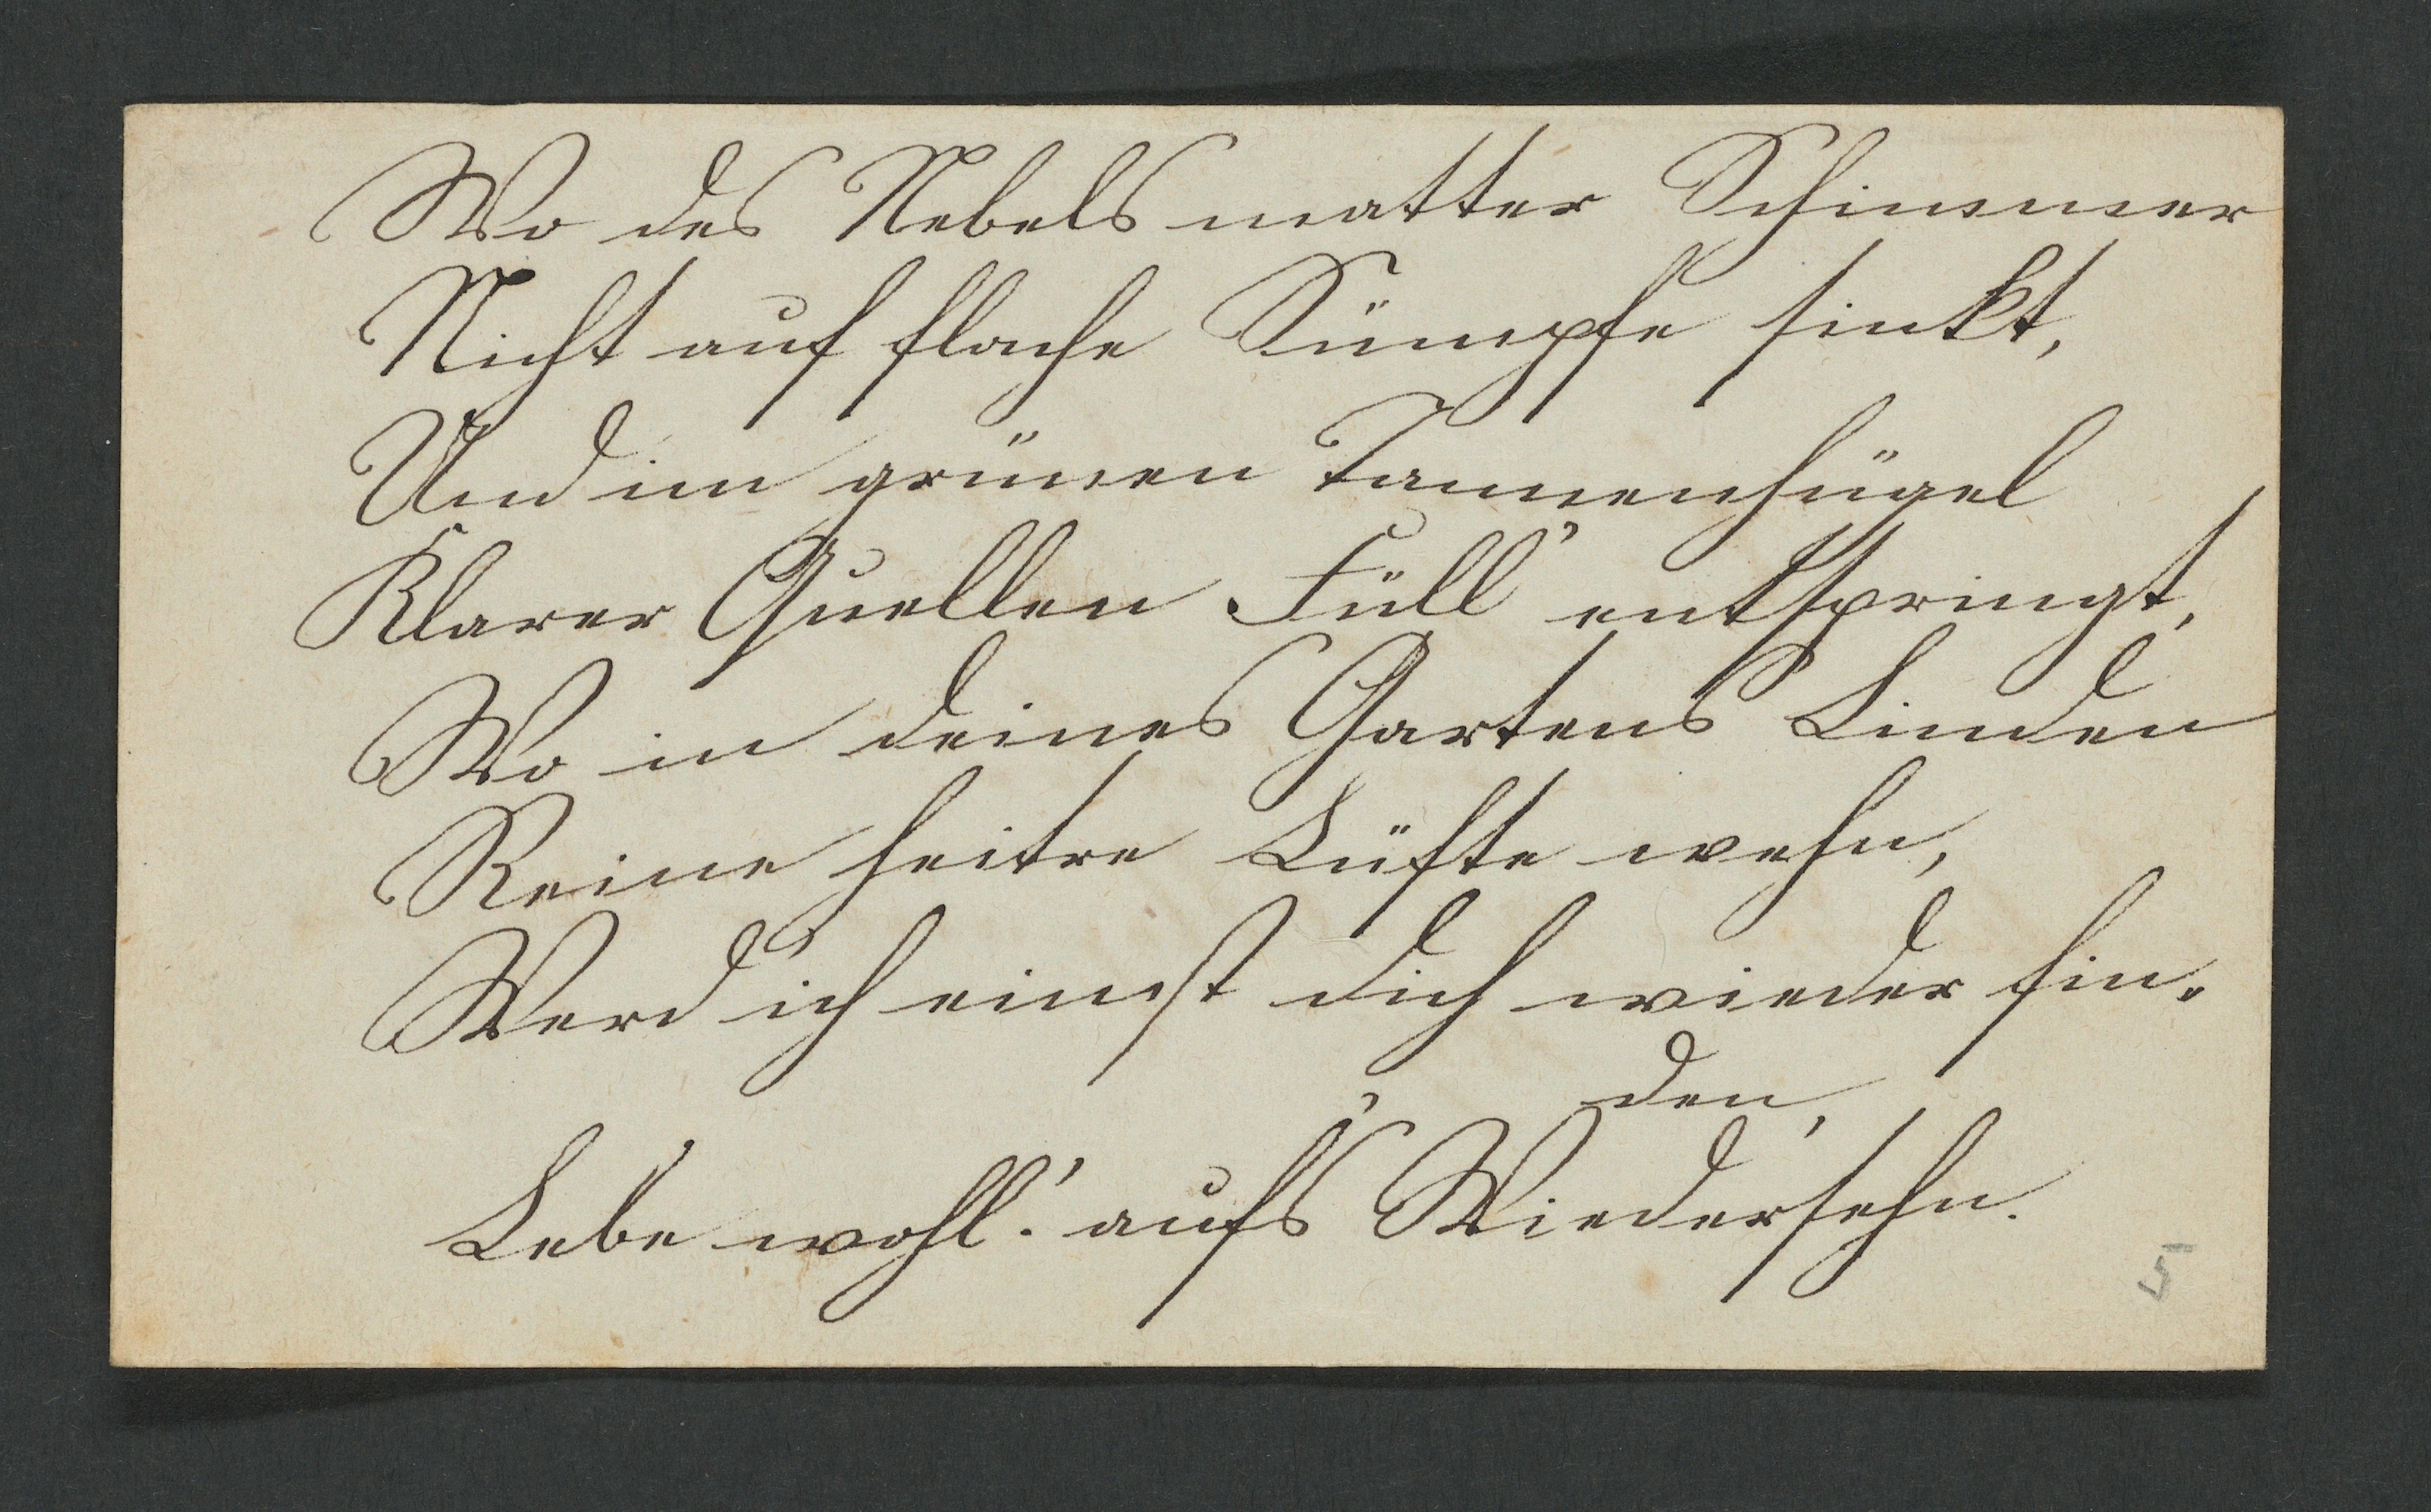 Wo des Nebels matter Schimmer
Nicht auf flache Sümpfe sinkt,
Und im grünen Tannenhügel
Klarer Quellen Füll' entspringt,
Wo in deines Gartens Linden
Reine heitre Lüfte wehn,
Werd' ich einst dich wieder fin-
den,
Lebe wohl! auf's Wiedersehn.
5